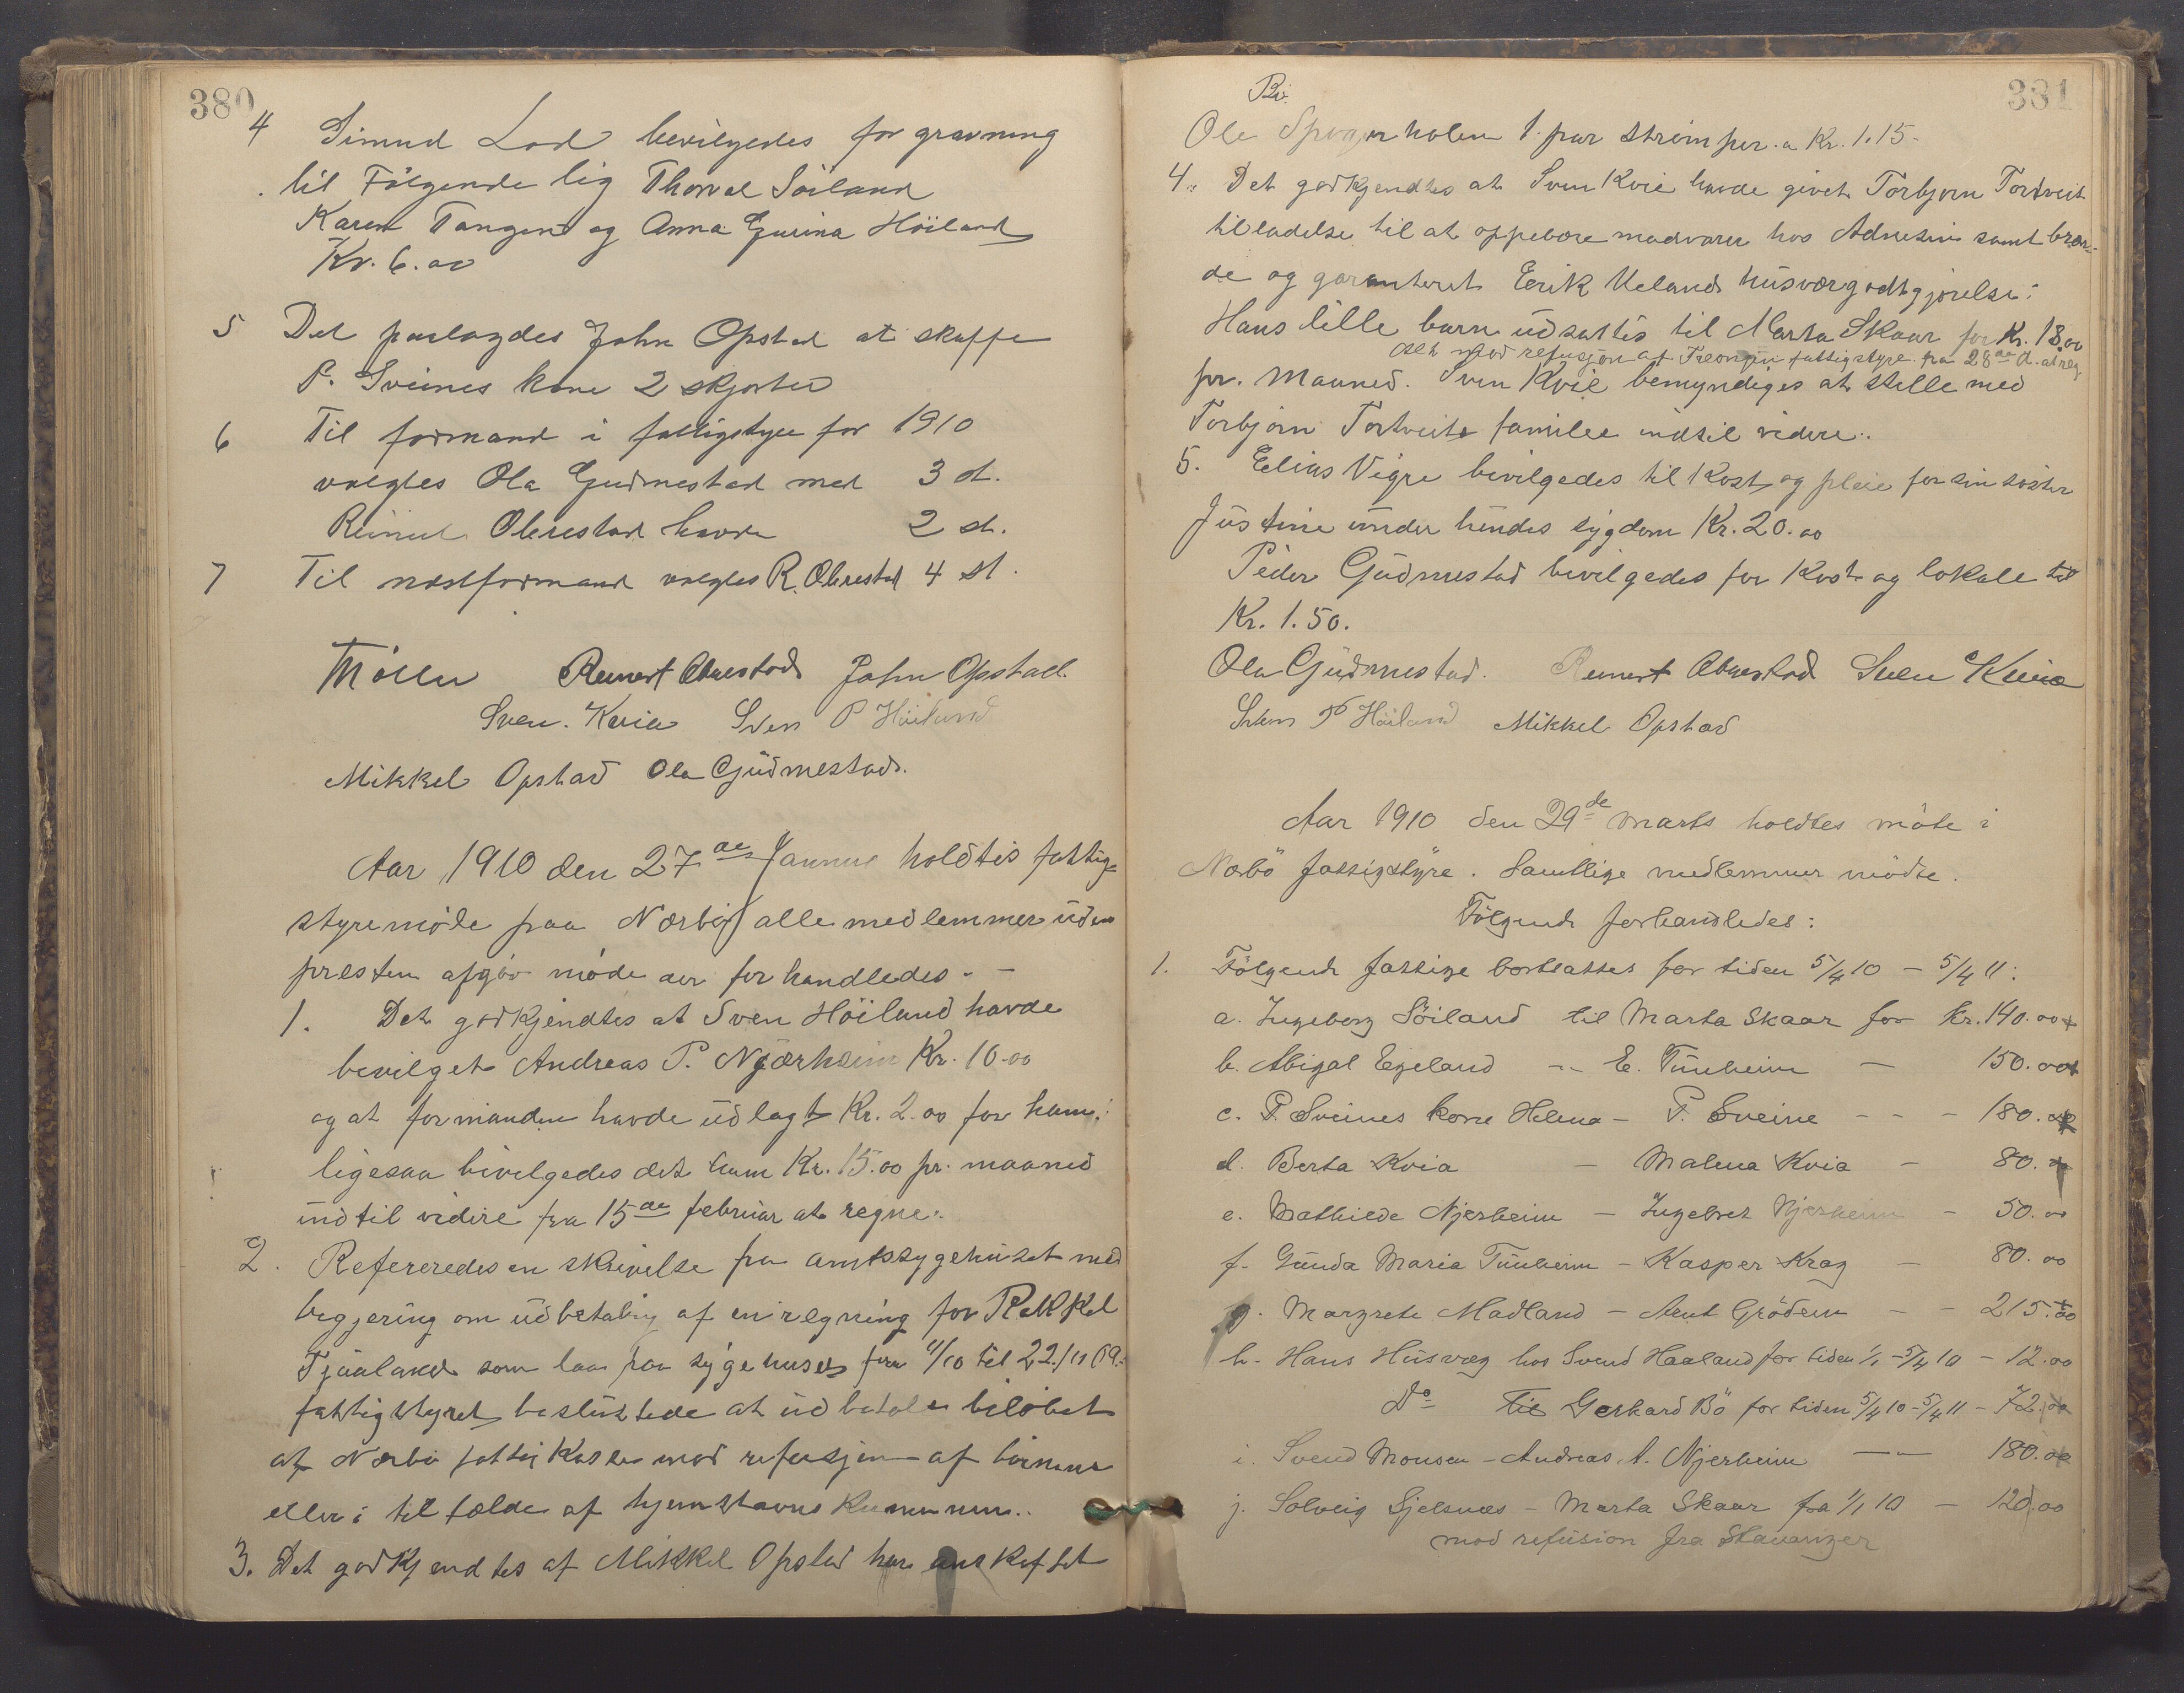 380
4 Simud Lod bevilgedes for gravning
til Følgende lig Thorval Söiland
Karen Tangen og Anna Gurina Höiland
Kr. 6.00
5 Det paalagdes John Opstad at skaffe
P. Sveines kone 2 skjorter
6 Til formand i fattigstyre for 1910
valgtes Ola Gudmestad med 3 st.
Reinert Obrestad havde 2 st.
7 Til næstformand valgtes R. Obrestad 4 st.
Möller Reinert Obrestad John Opstad.
Sven Kvia Sven P Höiland
Mikkel Opstad Ola Gudmestad.
Aar 1910 den 27de Januar holdtes fattig-
styremøde paa Nærbø alle medlemmer uden
presten afgav møde der forhandledes. —
1. Det godkjendtes at Sven Höiland havde
bevilget Andreas P. Njærheim Kr. 10.00
og at formanden havde udlagt Kr. 2.00 for ham;
ligesaa bevilgedes det ham Kr. 15.00 pr. maaned
indtil videre fra 15de februar at regne.
2. Refereredes en skrivelse fra amtssygehuset med
begjering om udbetaling af en regning for Rakkel
Tjaaland som laa paa sygehuset fra 4/10 til 22/11 09.
fattigstyret besluttede at udbetale beløbet
af Nærbø fattigkasse mod refusjon af
eller i tilfælde af hjemstavnskommunen..
3. Det godkjendtes at Mikkel Opstad har anskaffet
331
Bi.
Ole Spvagnholen 1 par strømper a Kr. 1.15.
4. Det godkjendtes at Sven Kvie havde givet Torbjørn Tortveit
tilladelse til at oppebære madvarer hos Adnesen samt bræn-
de og garanteret Eerik Ueland husværgodtgjørelse;
Hans lille barn udsattes til Marta Skaar for Kr. 18.00
alt mod refusjon af fattigstyre fra 28de d. at reg.
pr. Maaned. Sven Kvie bemyndiges at stelle med
Torbjørn Tortveits familie indtil videre..
5. Elias Vigre bevilgedes til Kost og pleie for sin søster
Justine under hendes sygdom Kr. 20.00
Peder Gudmestad bevilgedes for Kost og lokale til
Kr. 1.50.
Ola Gudmestad. Reinert Obrestad Sven Kvia
Sven P Höiland Mikkel Opstad
Aar 1910 den 29de marts holdtes møte i
Nærbö fattigstyre. Samtlige medlemmer mødte.
Følgende forhandledes:
1. Følgende fattige bortsattes for tiden 5/4 10 — 5/4 11:
a. Ingeborg Söiland til Marta Skaar for kr. 140.00
b. Abigal Egeland — E. Tunheim — 150.00
c. P. Sveines kone Helena — P. Sveine — — 180.00
d. Berta Kvia — Malena Kvia — 80.
e. Mathilde Njerheim — Ingebret Njerheim — 50.00
f. Gunda Maria Tunheim — Kasper Krag — 80.00
g. Margrete Madland — Arnt Grödem — — 215.00
h. Hans Husvæg hos Svend Haaland for tiden 1/1 - 5/4 10 — 12.00
Do til Gerhard Bö for tiden 5/4 10 - 5/4 11 — 72.00
i. Svend Monsen — Andreas A. Njerheim — 180.00
j. Solveig Sjelsnæs — Marta Skaar fra 1/1 10 — 120.00
mod refusion fra Stavanger